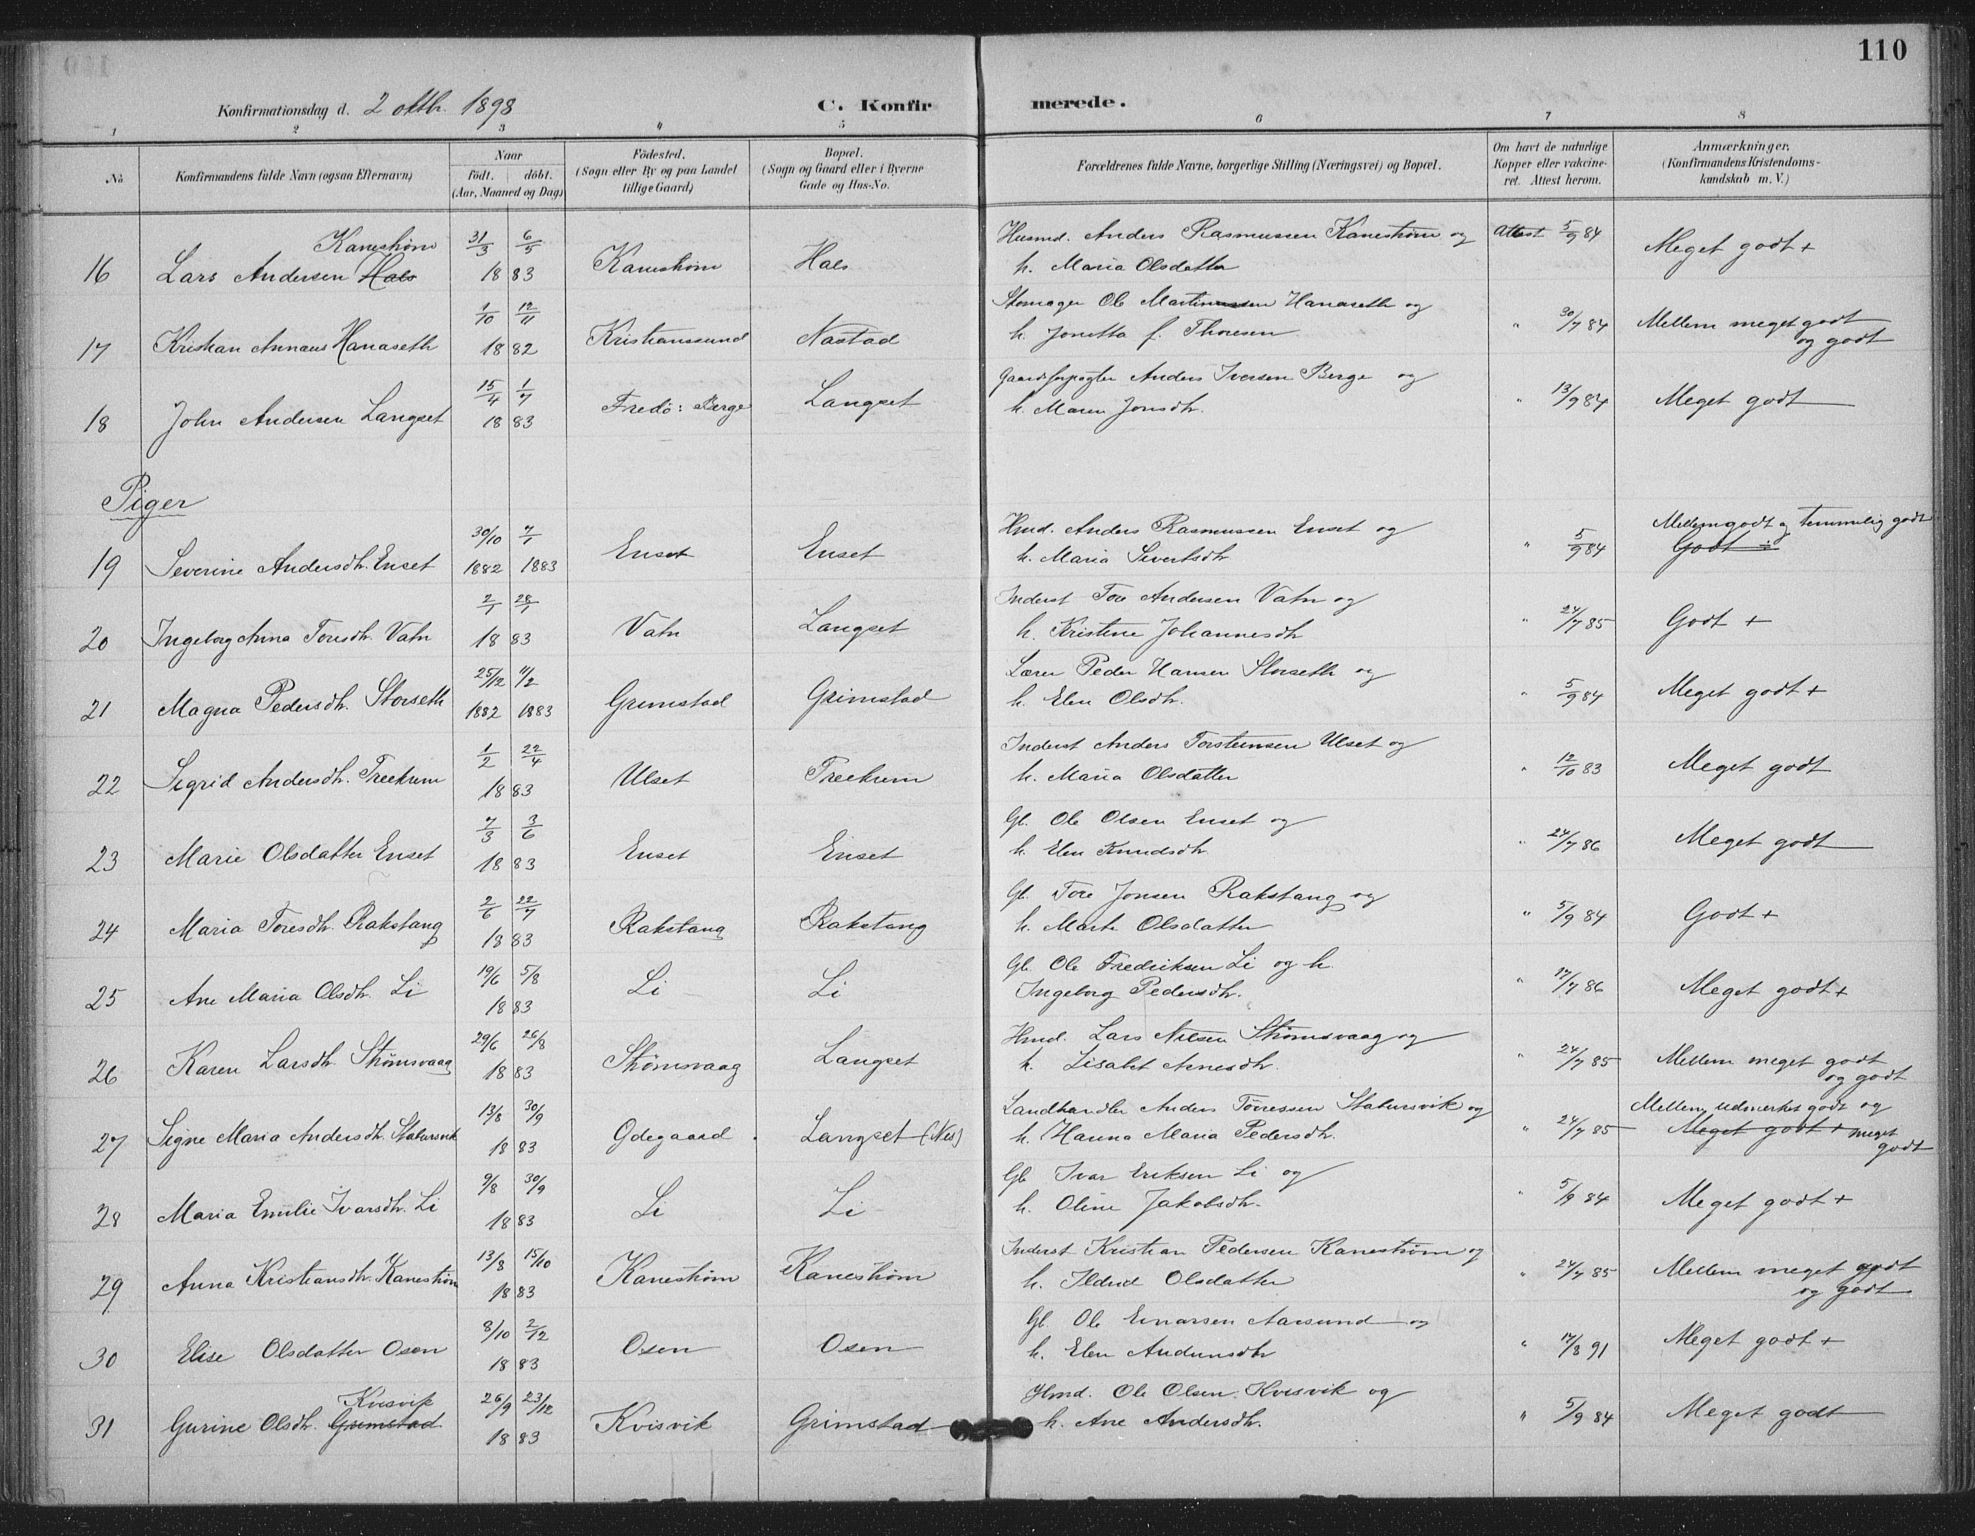 110
Konfirmationsdag d. 2 oktbr. 1898
C. Konfirmerede.
1 2 3 4 5 6 7 8
No
Konfirmandens fulde Navn (ogsaa Efternavn)
Naar
födt. döbt.
(Aar, Maaned og Dag)
Födested.
(Sogn eller By og paa Landet
tillige Gaard)
Bopæl.
(Sogn og Gaard eller i Byerne
Gade og Hus-No.
Forældrenes fulde Navne, borgerlige Stilling (Næringsvei) og Bopæl.
Om havt de naturlige
Kopper eller vakcine-
ret. Attest herom.
Anmærkninger.
(Konfirmandens Kristendoms-
kundskab m. V.)
Kanestrøm 31/3 6/5 Husmd. Anders Rasmussen Kanestrøm og Attest 5/9 84
16 Lars Andersen Hals 1883 Kanestrøm Hals h. Maria Olsdatter Meget godt +
1/10 12/11 Ole Martinussen Hanaseth og
17 Kristian Annæus Hanaseth 1882 Kristianssund Nastad h. Jonetta f. Thoresen " 30/7 84 Mellem meget godt
og godt
15/4 1/7 Gaardforpagter Anders Iversen Berge og
18 John Andersen Langset 1883 Fredö: Berge Langset h. Maren Jonsdtr. " 13/9 84 Meget godt
Piger
30/10 7/1 Hmd. Anders Rasmussen Enset og Mellem godt og temmelig godt
19 Severine Andersdtr. Enset 1882 1883 Enset Enset h. Maria Sivertsdtr " 5/9 84 Godt ÷
2/1 28/1 Inderst Tore Andersen Vatn og
20 Ingeborg Anna Toresdtr. Vatn 1883 Vatn Langset h. Kristine Johannesdtr " 24/7 85 Godt +
25/12 11/2 Lærer Peder Hansen Storseth og
21 Magna Pedersdtr. Storseth 1882 1883 Grimstad Grimstad h. Elen Olsdtr. " 5/9 84 Meget godt +
1/2 22/4 Inderst Anders Torsteinsen Ulset og
22 Sigrid Andersdtr. Treekrem 1883 Ulset Treekrem h. Maria Olsdatter " 12/10 83 Meget godt
7/3 3/6 Gb. Ole Olsen Enset og
23 Marie Olsdatter Enset 1883 Enset Enset h. Elen Knudsdtr " 24/7 86 Meget godt
2/6 22/7 Gb. Tore Jonsen Rakstang og
24 Maria Toresdtr. Rakstang 1883 Rakstang Rakstang h. Marte Olsdatter " 5/9 84 Godt +
19/6 5/8 Gb. Ole Fredriksen Li og h.
25 Ane Maria Olsdtr. Li 1883 Li Li Ingeborg Pedersdtr. " 17/7 86 Meget godt +
29/6 26/8 Hmd. Lars Nilsen Strømsvaag og
26 Karen Larsdtr. Strømsvaag 1883 Strømsvaag Langset h. Lisabet Arnesdtr. " 24/7 85 Mellem meget godt
og godt
13/8 30/9 Landhandler Anders Tørressen Statursvik og Mellem udmerket godt og
27 Signe Maria Andersdtr. Statursvik 1883 Ødegaard Langset (Nes) h. Hanna Maria Pedersdtr. " 24/7 85 Meget godt + meget
godt
9/8 30/9 Gb Ivar Eriksen Li og
28 Maria Emilie Ivarsdtr. Li 1883 Li Li h. Oline Jakobsdtr. " 5/9 84 Meget godt +
13/8 15/10 Inderst Kristian Pedersen Kanestrøm og
29 Anna Kristiansdtr. Kanestrøm 1883 Kanestrøm Kanestrøm h. Ildrid Olsdatter " 24/7 85 Mellem meget godt
og godt
8/10 2/12 Gb. Ole Einarsen Aarsund og
30 Elise Olsdatter Osen 1883 Osen Osen h. Elen Andersdtr " 17/8 91 Meget godt +
Kvisvik 26/9 23/12 Hmd. Ole Olsen Kvisvik og
31 Gurine Olsdtr. Grimstad 1883 Kvisvik Grimstad h. Ane Andersdtr. " 5/9 84 Meget godt